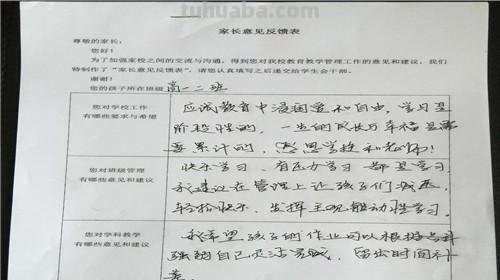 tuhuaba.com
家长意见反馈表
尊敬的家长：
您好！
为了加强家校之间的交流与沟通，得到您对我校教育教学管理工作的意见和建议，我们
特制作了“家长意见反馈表”，请您认真填写之后递交给学生会干部。
谢谢！
您的孩子所在班级 高一二班
您对学校工作
有哪些要求与希望
应试教育中浸润爱和自由，学习是
阶段性的，一生的成长万幸福是需
要累计的，感恩学校和老师！
您对班级管理
有哪些意见和建议
快乐学习，有压力学习都是学习
我建议在管理上让孩子们减压，
轻松快乐，发挥主观能动性学习。
您对学科教学
有哪些意见和建议
我希望孩子的作业可以根据
自己 留出时间补